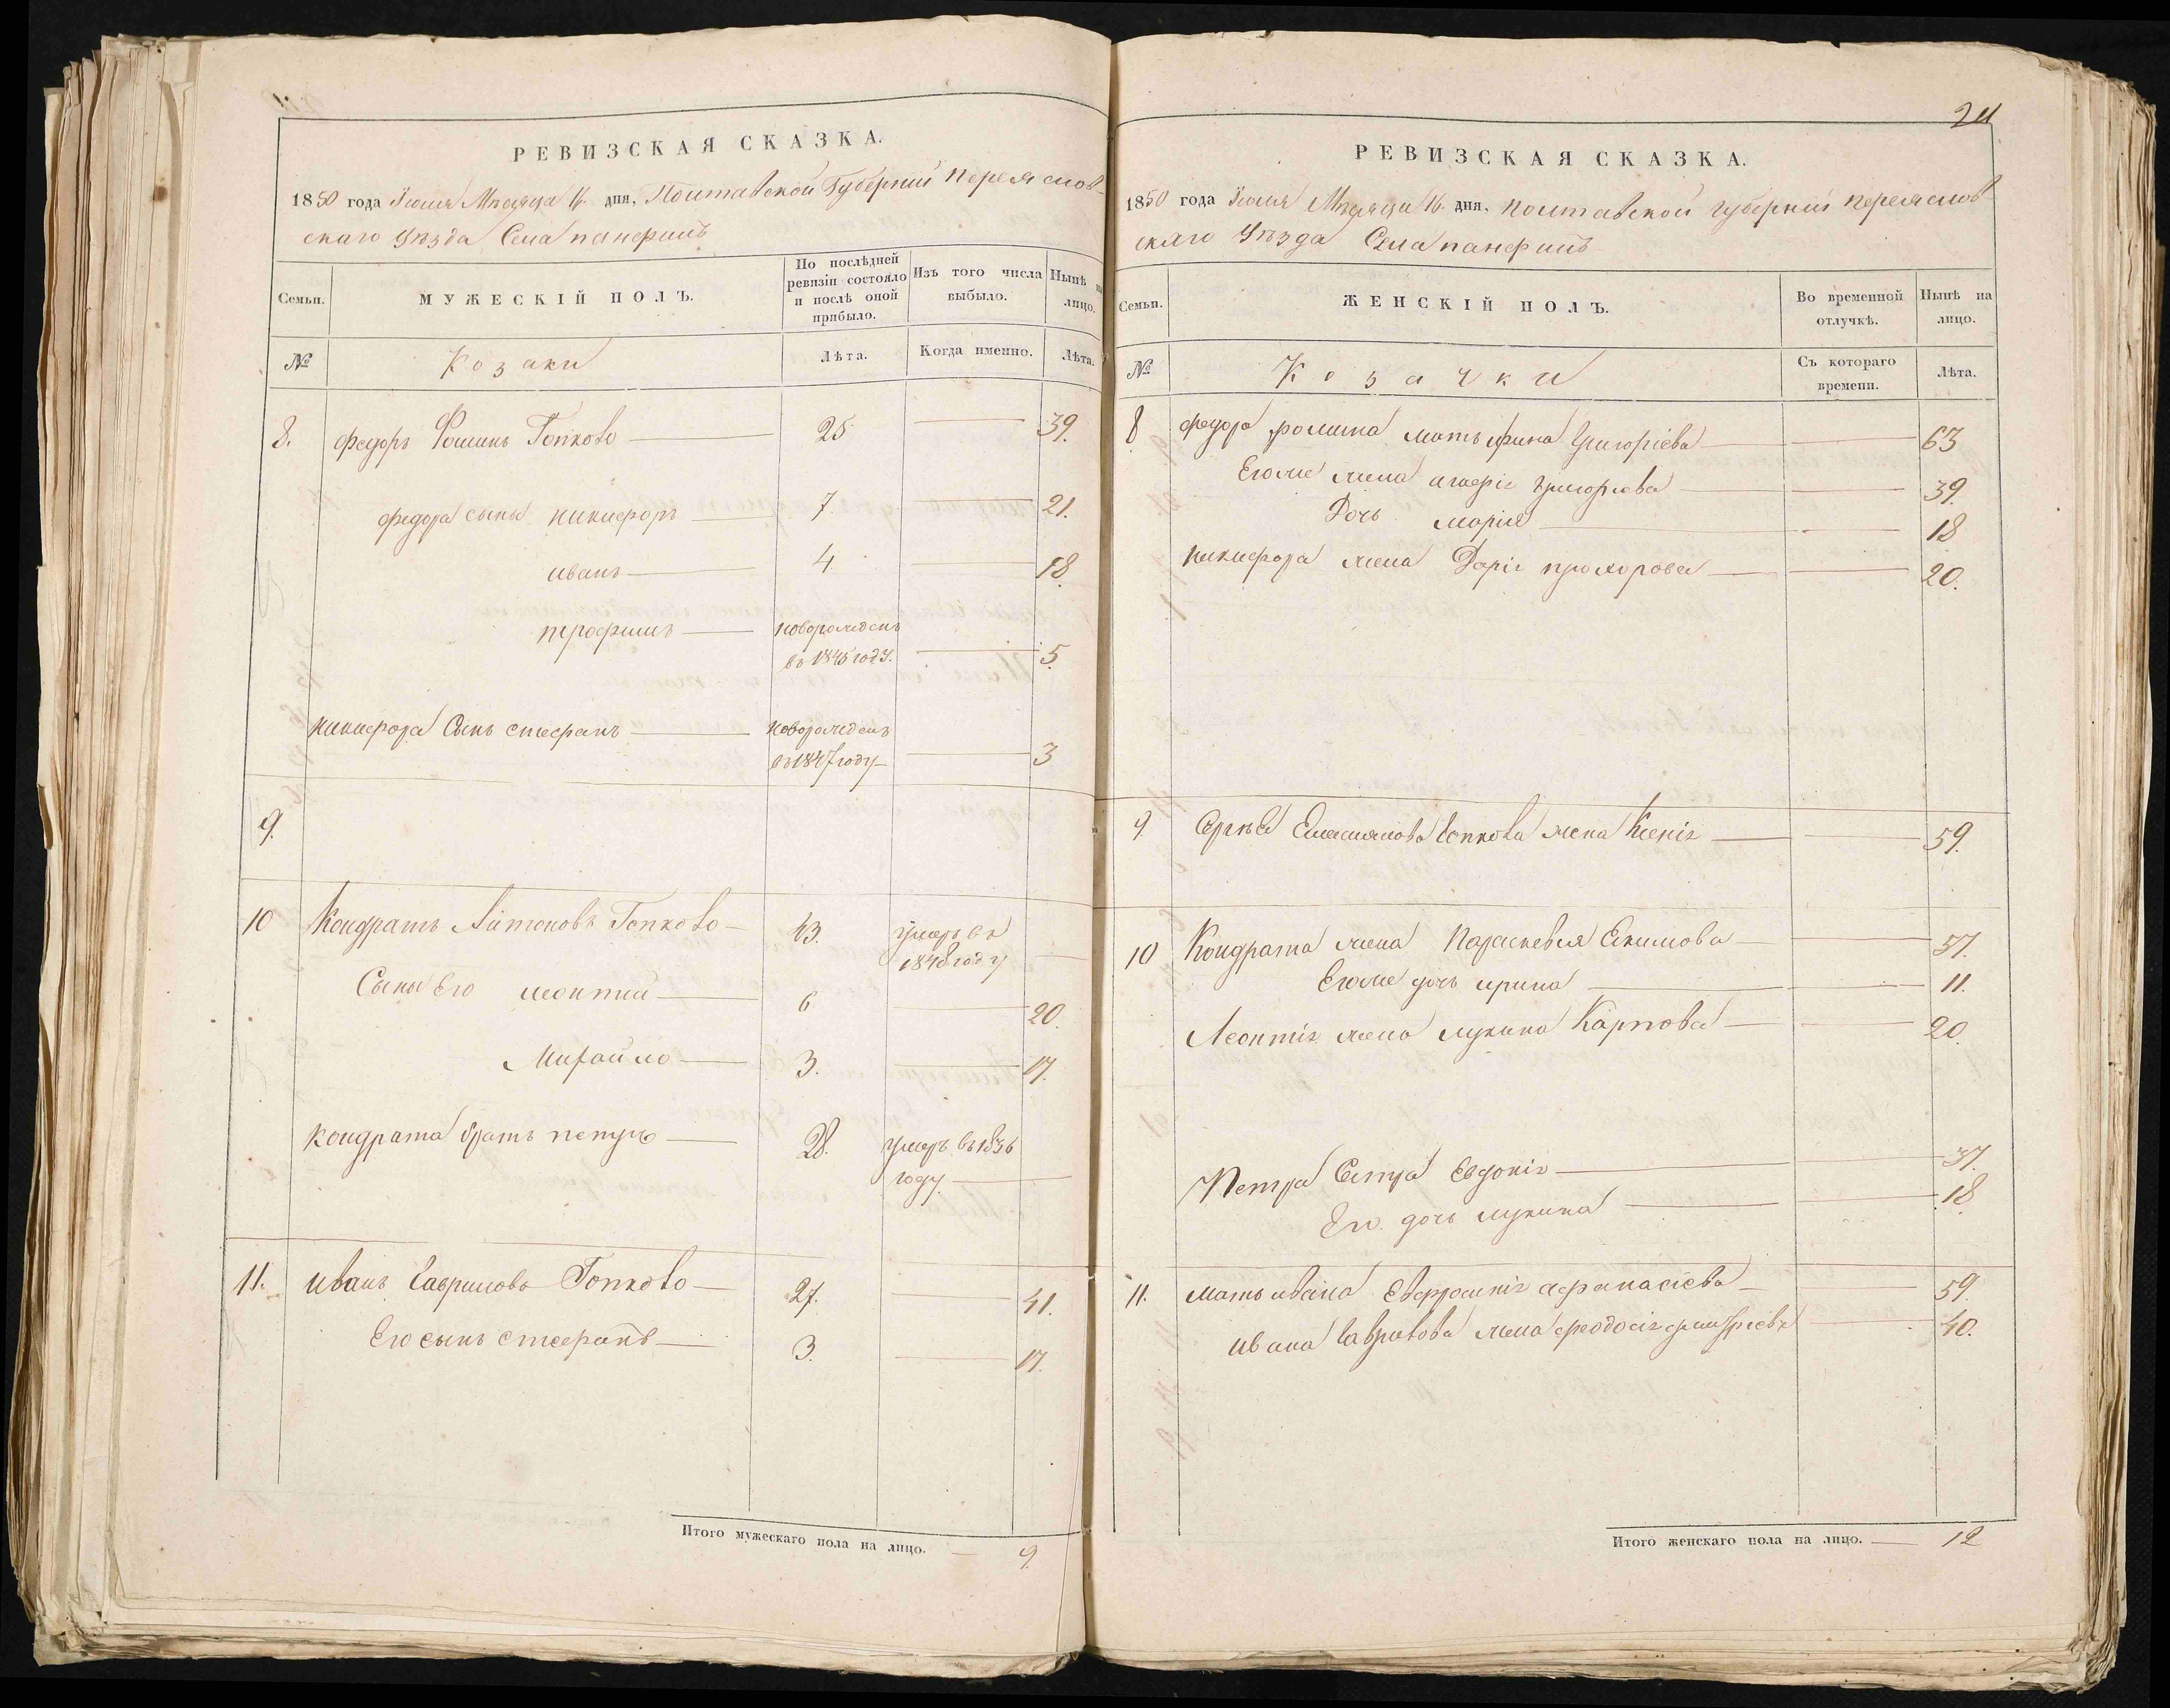 РЕВИЗСКАЯ СКАЗКА.
1850 года Июня Мѣсяца 16 дня, Полтавской Губерніи Переяслов-
скаго Уѣзда Села панфилъ
Семьи.
МУЖЕСКІЙ ПОЛЪ.
По послѣдней ревизіи состояло и послѣ оной прибыло.
Изъ того числа выбыло.
Нынѣ на лицо.
№
Козаки
Лѣта.
Когда именно.
Лѣта.
8. федоръ Фоминъ Гопково 25 39.
федора сыны никифоръ 7. 21.
иванъ 4 18.
трофимъ новорожденъ
въ 1845 году. 5.
никифора Сынъ стефанъ новорожденъ
въ 1847 году 3
9.
10 Кондратъ Антоновъ Гопково 43. умеръ въ
1848 году
Сыны Его леонтий 6 20.
Михайло 3. 17.
кондрата братъ петръ 28. умеръ въ 1836
году.
11. иванъ Гавриловъ Гопково 27. 41.
Его сынъ стефанъ 3. 17.
Итого мужескаго пола на лицо. 9.
211
РЕВИЗСКАЯ СКАЗКА.
1850 года Июня Мѣсяца 16 дня, полтавской губерніи переяслов-
скаго Уѣзда Села панфилъ
Семьи.
ЖЕНСКІЙ ПОЛЪ.
Во временной отлучкѣ.
Нынѣ на лицо.
№
Козачки
Съ котораго времени.
Лѣта.
8 федора фомина мать ирина Григоріева 63
Егоже жена Григорьева 39.
Дочь марія 18
никифора жена Даріѧ прохорова 20.
9 Сергѣя Емельянова Гопкова жена Ксеніѧ 59.
10 Кондрата жена Параскевия Екимова 57.
Егоже дочь ирина 11.
Леонтіѧ жена лукина Карпова 20.
Петра Сестра Евдокіѧ 37.
Его дочь лукина 18
11. мать ивана Евфросиніѧ афанасіева 59.
ивана Гаврилова жена феодосіѧ дмитріева 40.
Итого женскаго пола на лицо. 12